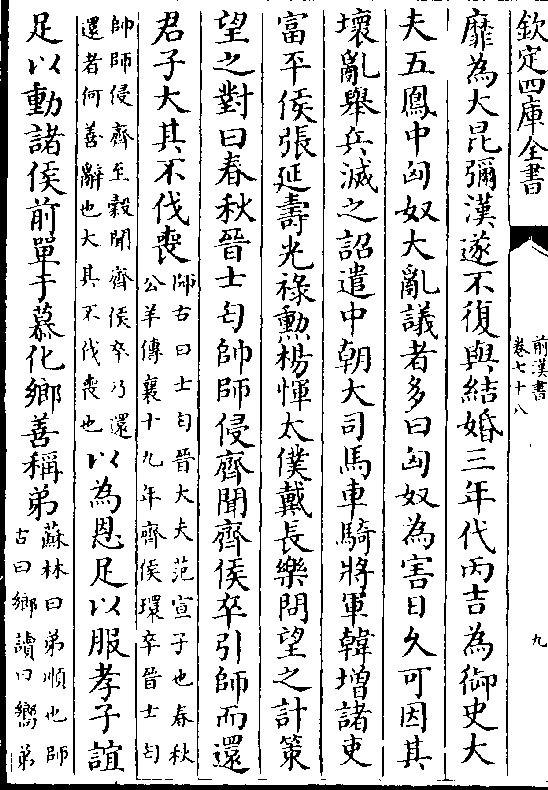 欽定四庫全書
前漢書
卷七十八
九
靡為大昆彌漢遂不復與結婚三年代丙吉為御史大
夫五鳳中匈奴大亂議者多曰匈奴為害日久可因其
壞亂舉兵滅之詔遣中朝大司馬車騎將軍韓增諸吏
富平侯張延壽光祿勲楊惲太僕戴長樂問望之計策
望之對曰春秋晉士匄帥師侵齊聞齊侯卒引師而還
君子大其不伐喪
師古曰士匄晉大夫范宣子也春秋
公羊傳襄十九年齊侯環卒晉士匄
帥師侵齊至穀聞齊侯卒乃還
還者何善辭也大其不伐喪也
以為恩足以服孝子誼
足以動諸侯前單于慕化鄉善稱弟
蘇林曰弟順也師
古曰鄉讀曰嚮弟